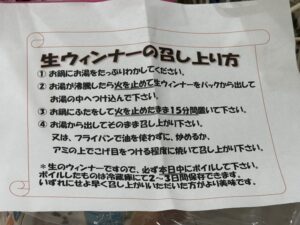 生ウィンナーの召し上り方
① お鍋にお湯をたっぷりわかしてください。
② お湯が沸騰したら火を止めて生ウィンナーをパックから出して
お湯の中へつけ込んで下さい。
③ お鍋にふたをして火を止めたまま15分間置いて下さい。
④ お湯から出してそのまま召し上がり下さい。
又は、フライパンで油を使わずに、炒めるか、
アミの上でこげ目をつける程度に焼いて召し上り下さい。
*生のウィンナーですので、必ず本日中にボイルして下さい。
ボイルしたものは冷蔵庫にて2~3日間保存できます。
いずれにせよ早く召し上りいただいた方がより美味です。